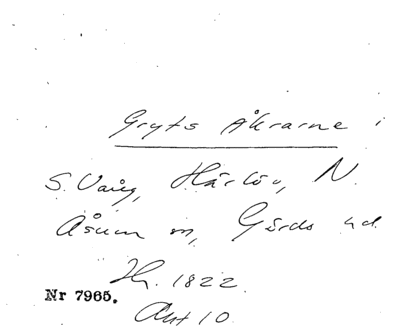 Gryts Åkrarne i
S. Vång, Härlöv, N.
Åsum sn, Gärds hd.
Hr. 1822
Nr 7965.
Akt 10.